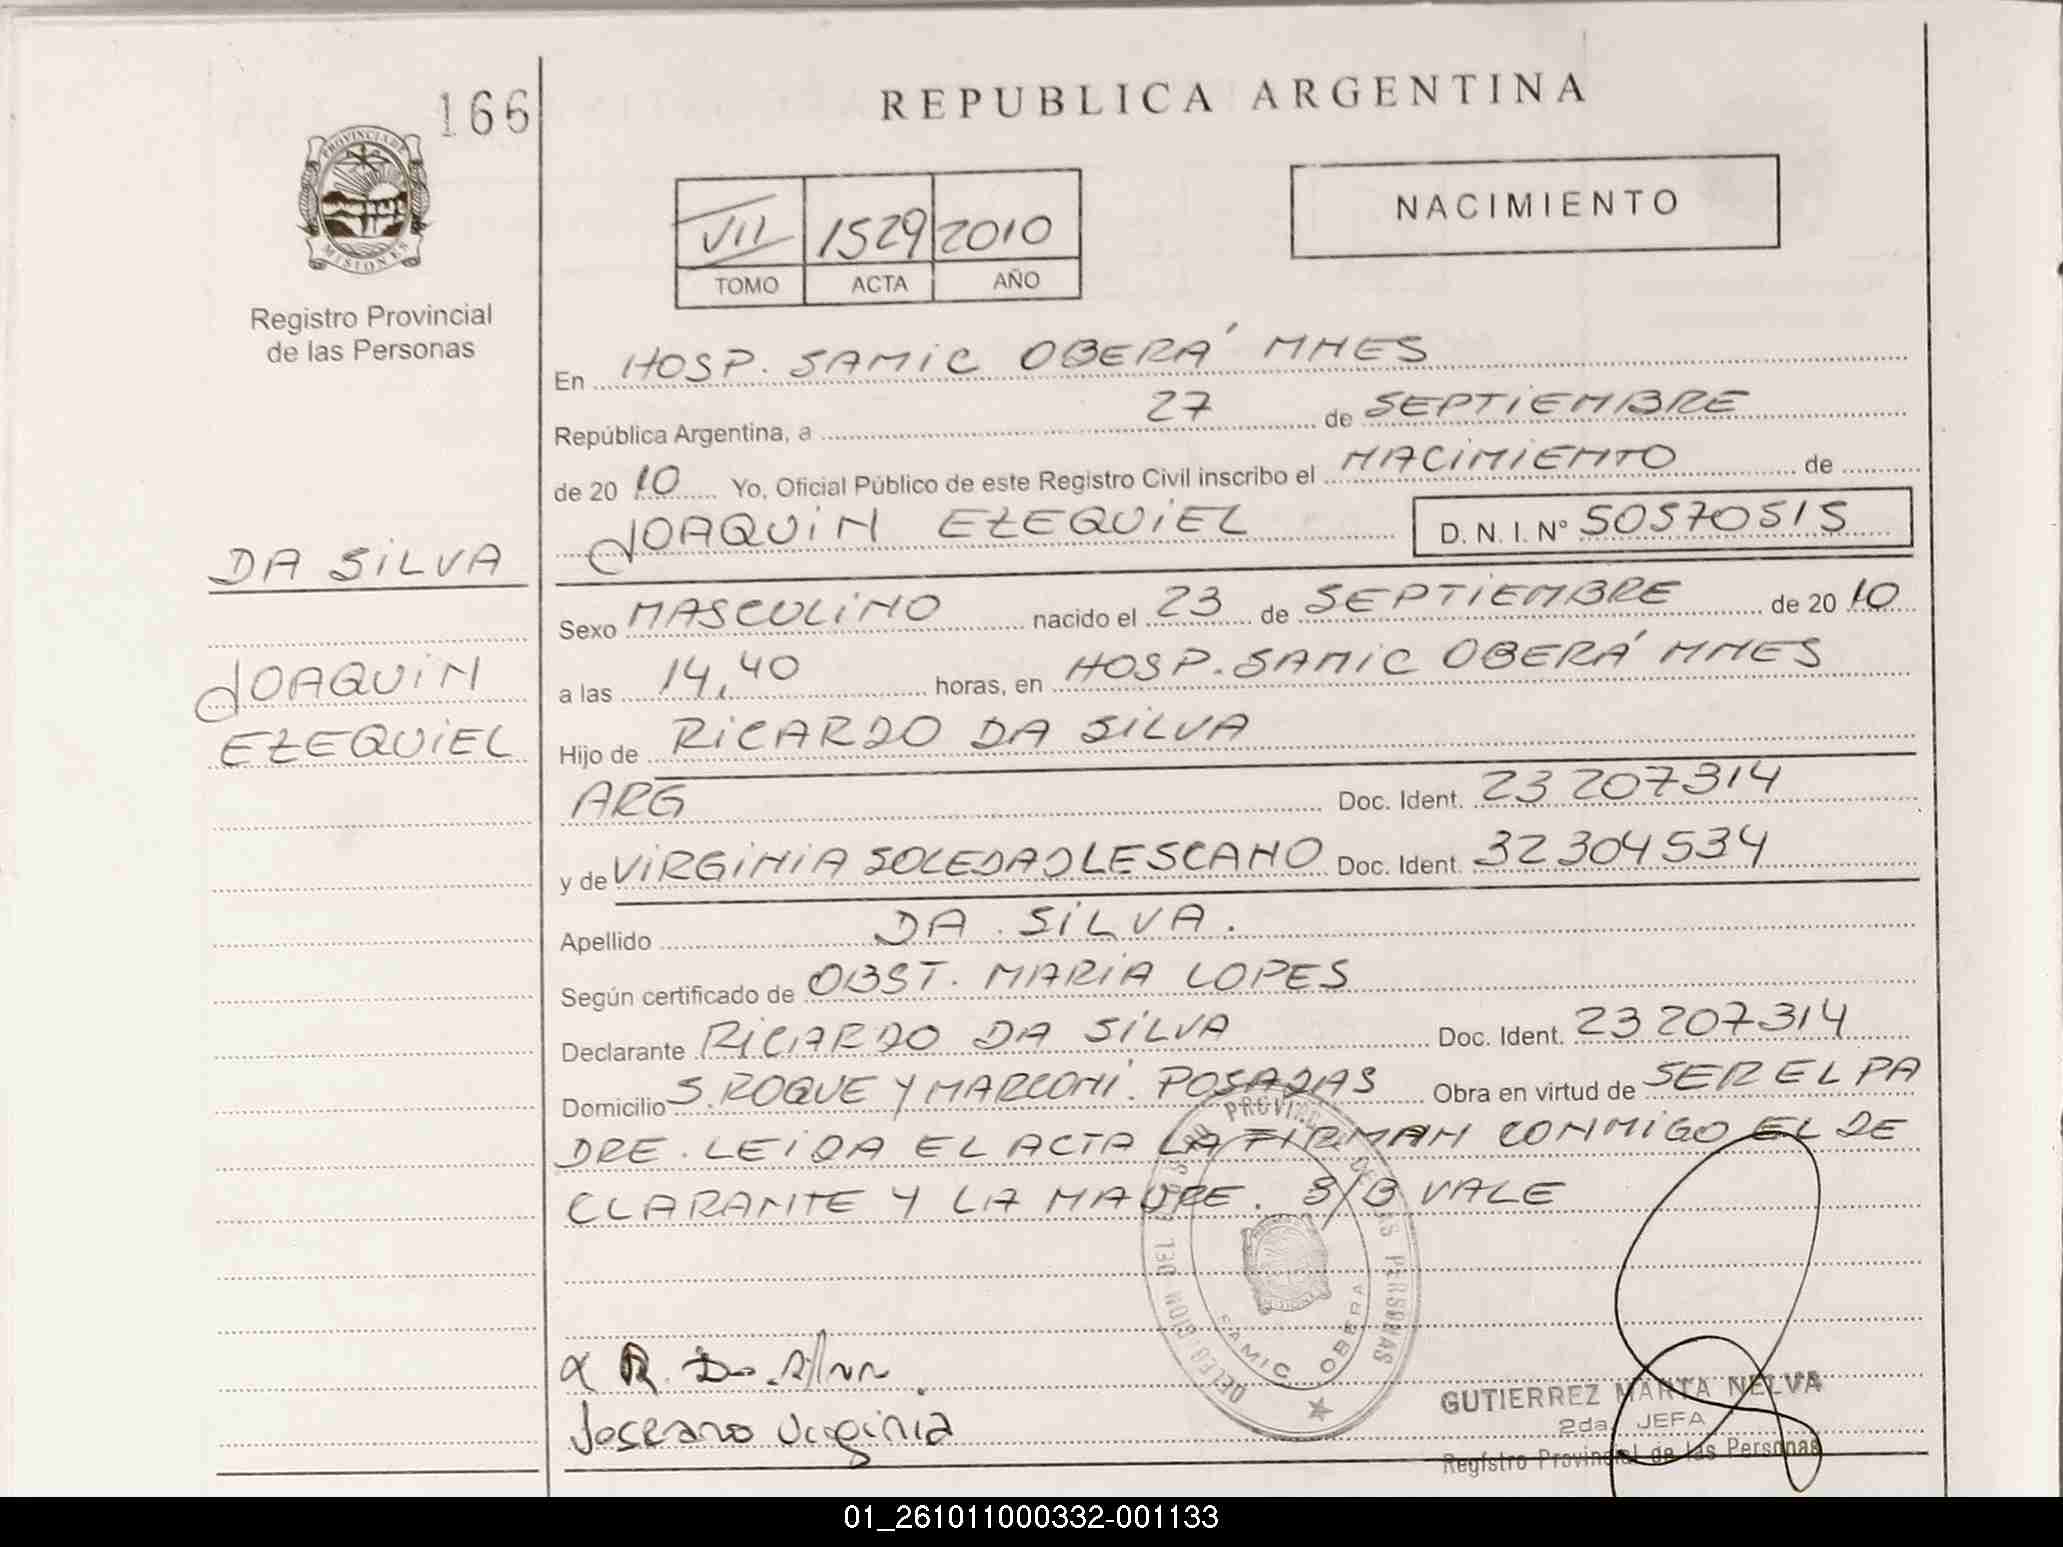 166
REPUBLICA ARGENTINA
PROVINCIA DE
MISIONES
Registro Provincial
de las Personas
VII 1529 2010
TOMO ACTA AÑO
NACIMIENTO
En HOSP. SAMIC OBERÁ MNES
República Argentina, a 27 de SEPTIEMBRE
de 20 10 Yo, Oficial Público de este Registro Civil inscribo el NACIMIENTO de
JOAQUIN EZEQUIEL D. N. I. Nº 50570515
DA SILVA
JOAQUIN
EZEQUIEL
Sexo MASCULINO nacido el 23 de SEPTIEMBRE de 20 10
a las 14,40 horas, en HOSP. SAMIC OBERÁ MNES
Hijo de RICARDO DA SILVA
ARG Doc. Ident. 23 207314
y de VIRGINIA SOLEDAD LESCANO Doc. Ident. 32304534
Apellido DA SILVA.
Según certificado de OBST. MARIA LOPES
Declarante RICARDO DA SILVA Doc. Ident. 23207314
Domicilio S. ROQUE Y MARCONI. POSADAS Obra en virtud de SER EL PA
DRE. LEIDA EL ACTA LA FIRMAN CONMIGO EL DE
CLARANTE Y LA MADRE. S/B VALE
SAMIC OBERA
R. Da Silva
Lescano Virginia
GUTIERREZ MARTA NELVA
2da. JEFA
Registro Provincial de las Personas
01_261011000332-001133